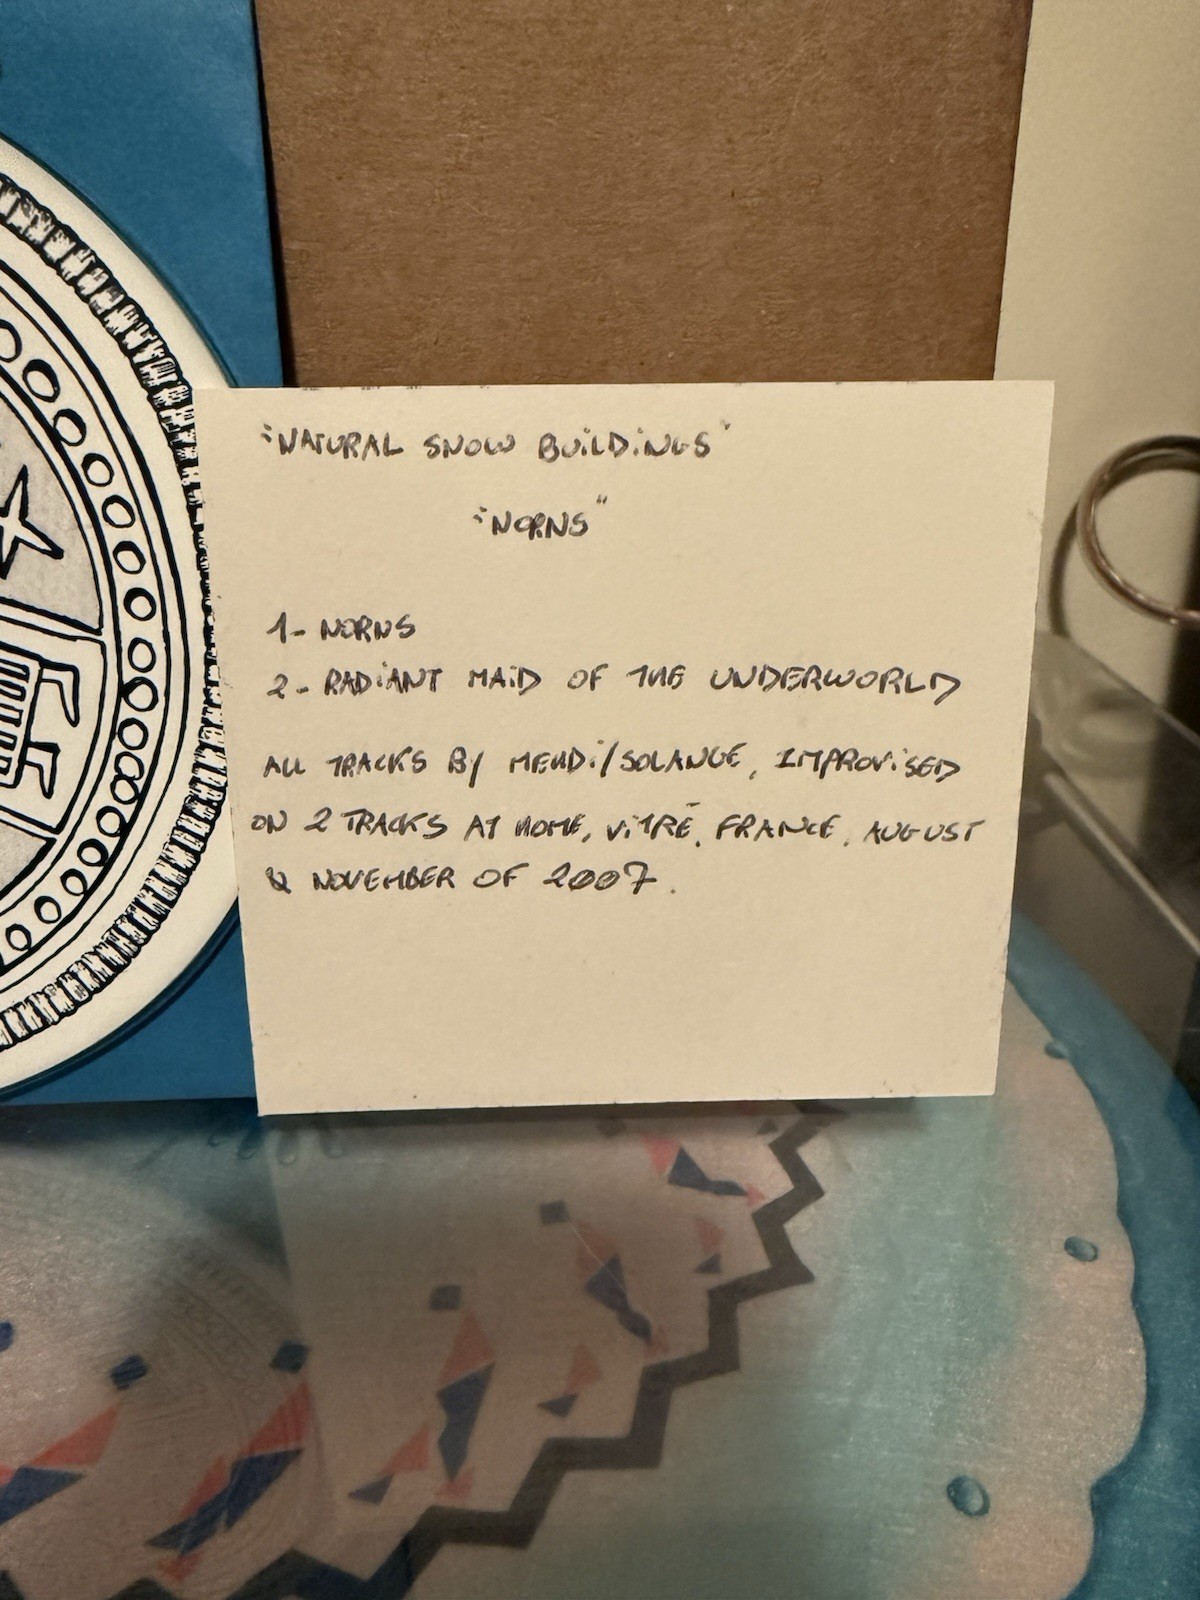 "NATURAL SNOW BUiLDiNGS"
"NORNS"
1- NORNS
2- RADiANT MAiD OF THE UNDERWORLD
ALL TRACKS BY MEHDi/SOLANGE, IMPROViSED
ON 2 TRACKS AT HOME, ViTRÉ, FRANCE, AUGUST
& NOVEMBER OF 2007.